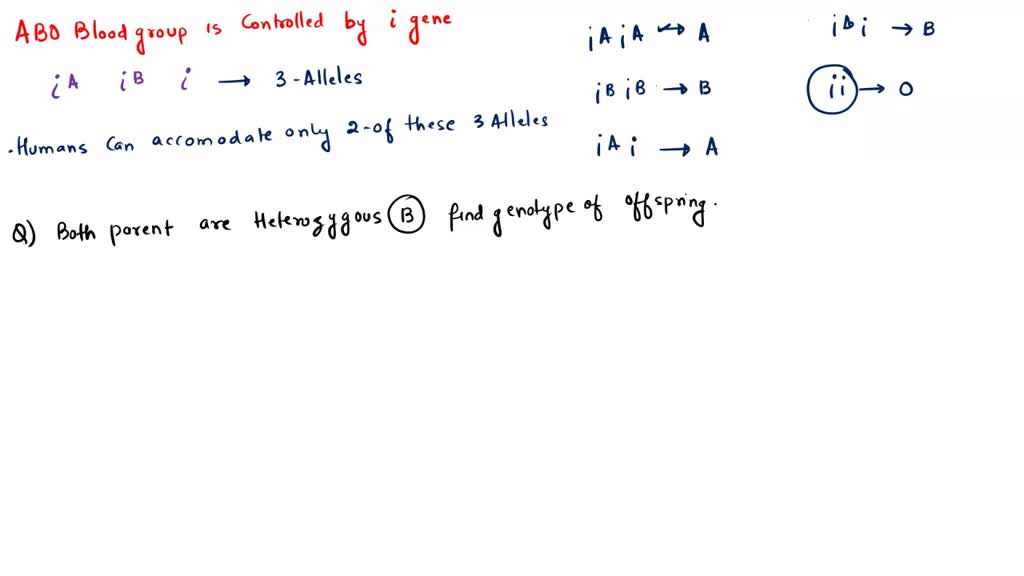 ABO Blood group is controlled by i gene
iA iB i → 3-Alleles
.Humans can accomodate only 2-of these 3 Alleles
iA iA ↔ A
iB iB → B
iA i → A
iB i → B
ii → O
Q) Both parent are Heterozygous B find genotype of offspring.